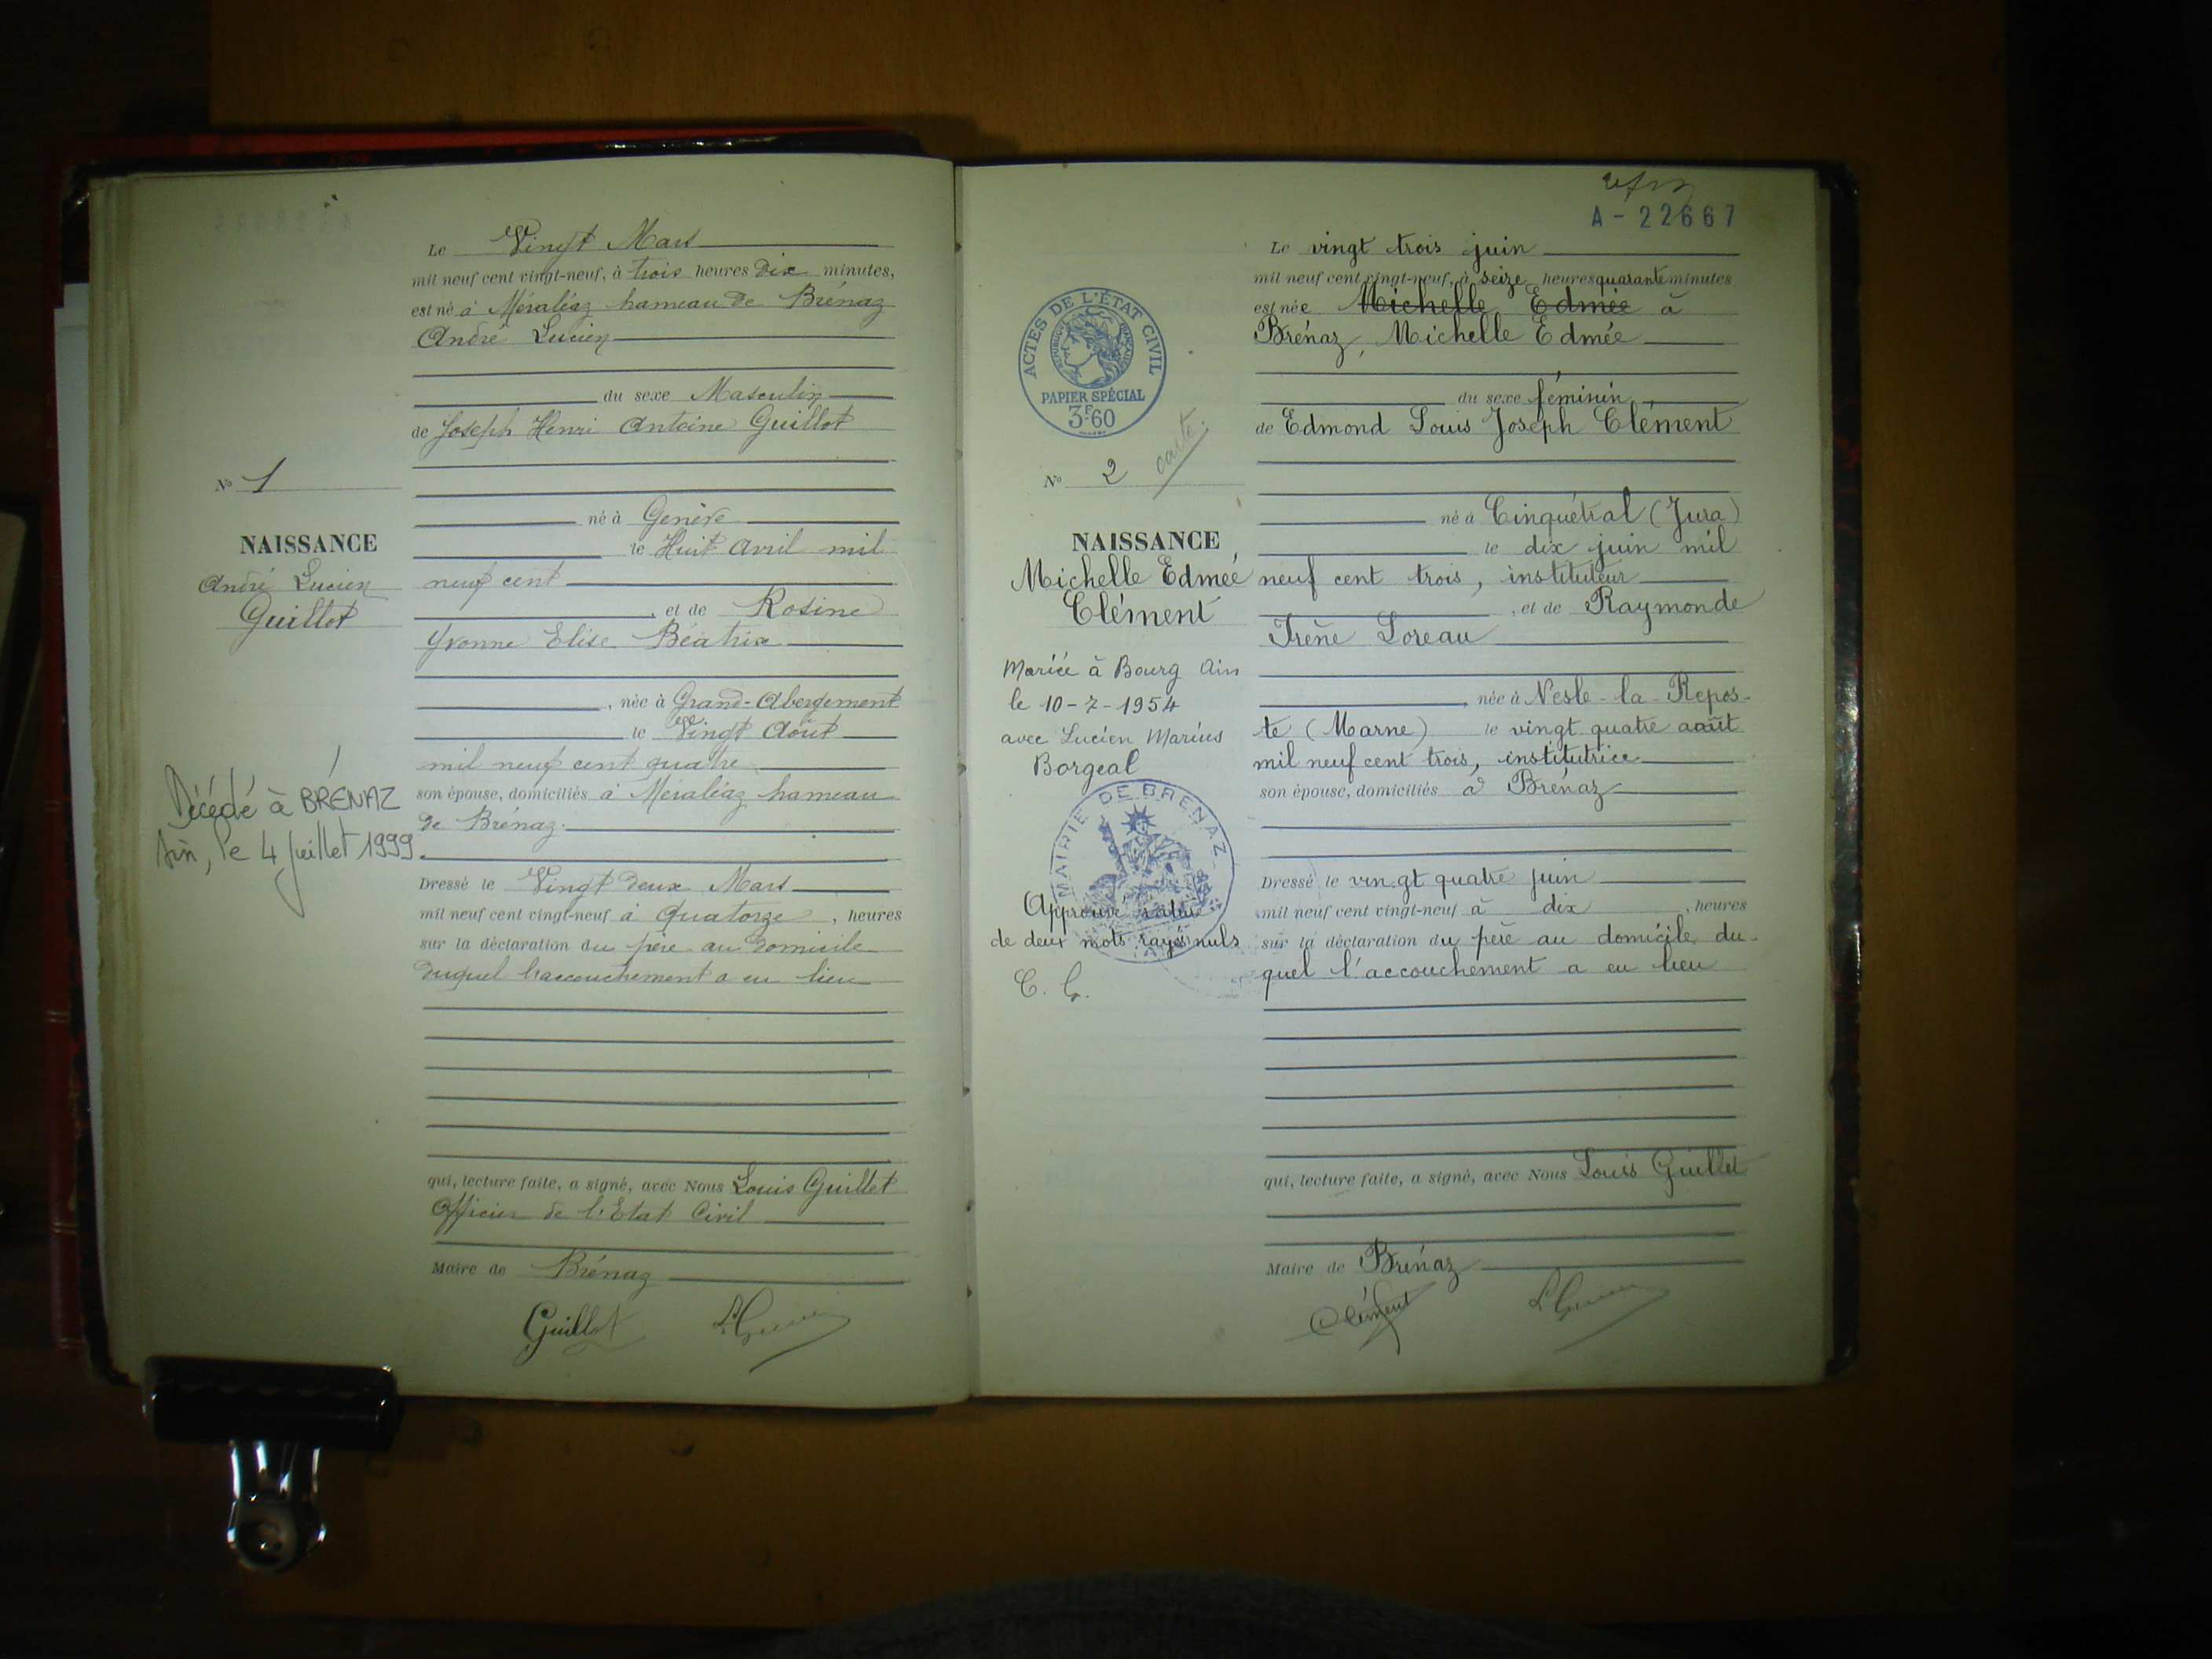 Le Vingt Mars
mil neuf cent vingt-neuf, à trois heures dix minutes,
est né à Méraléaz hameau de Brénaz
André Lucien
du sexe Masculin
de Joseph Henri Antoine Guillot
né à Genève
le Huit Avril mil
neuf cent
, et de Rosine
Yvonne Elise Béatrix
, née à Grand-Abergement
le Vingt Août
mil neuf cent quatre
son épouse, domiciliés à Méraléaz hameau
de Brénaz.
Dressé le Vingt deux Mars
mil neuf cent vingt-neuf à Quatorze, heures
sur la déclaration du père au domicile
duquel l'accouchement a eu lieu
qui, lecture faite, a signé, avec Nous Louis Guillet
Officier de l'Etat Civil
Maire de Brénaz
Guillot
N° 1
NAISSANCE
André Lucien
Guillot
Décédé à BRÉNAZ
Ain, le 4 juillet 1999.
A-22667
Le vingt trois juin
mil neuf cent vingt-neuf, à seize heures quarante minutes
est née Michelle Edmée à
Brénaz, Michelle Edmée
du sexe féminin
de Edmond Louis Joseph Clément
né à Cinquétral (Jura)
le dix juin mil
neuf cent trois, instituteur
, et de Raymonde
Irène Loreau
, née à Nesle-la-Repos-
te (Marne) le vingt quatre août
mil neuf cent trois, institutrice
son épouse, domiciliés à Brénaz
Dressé le vingt quatre juin
mil neuf cent vingt-neuf à dix, heures
sur la déclaration du père au domicile du-
quel l'accouchement a eu lieu
qui, lecture faite, a signé, avec Nous Louis Guillet
Maire de Brénaz
Clément
ACTES DE L'ÉTAT CIVIL
RÉPUBLIQUE FRANÇAISE
PAPIER SPÉCIAL
3F60
N° 2
carte.
NAISSANCE
Michelle Edmée
Clément
Mariée à Bourg Ain
le 10-7-1954
avec Lucien Marius
Borgeal
MAIRIE DE BRENAZ
Approuvé
de deux mots rayés nuls